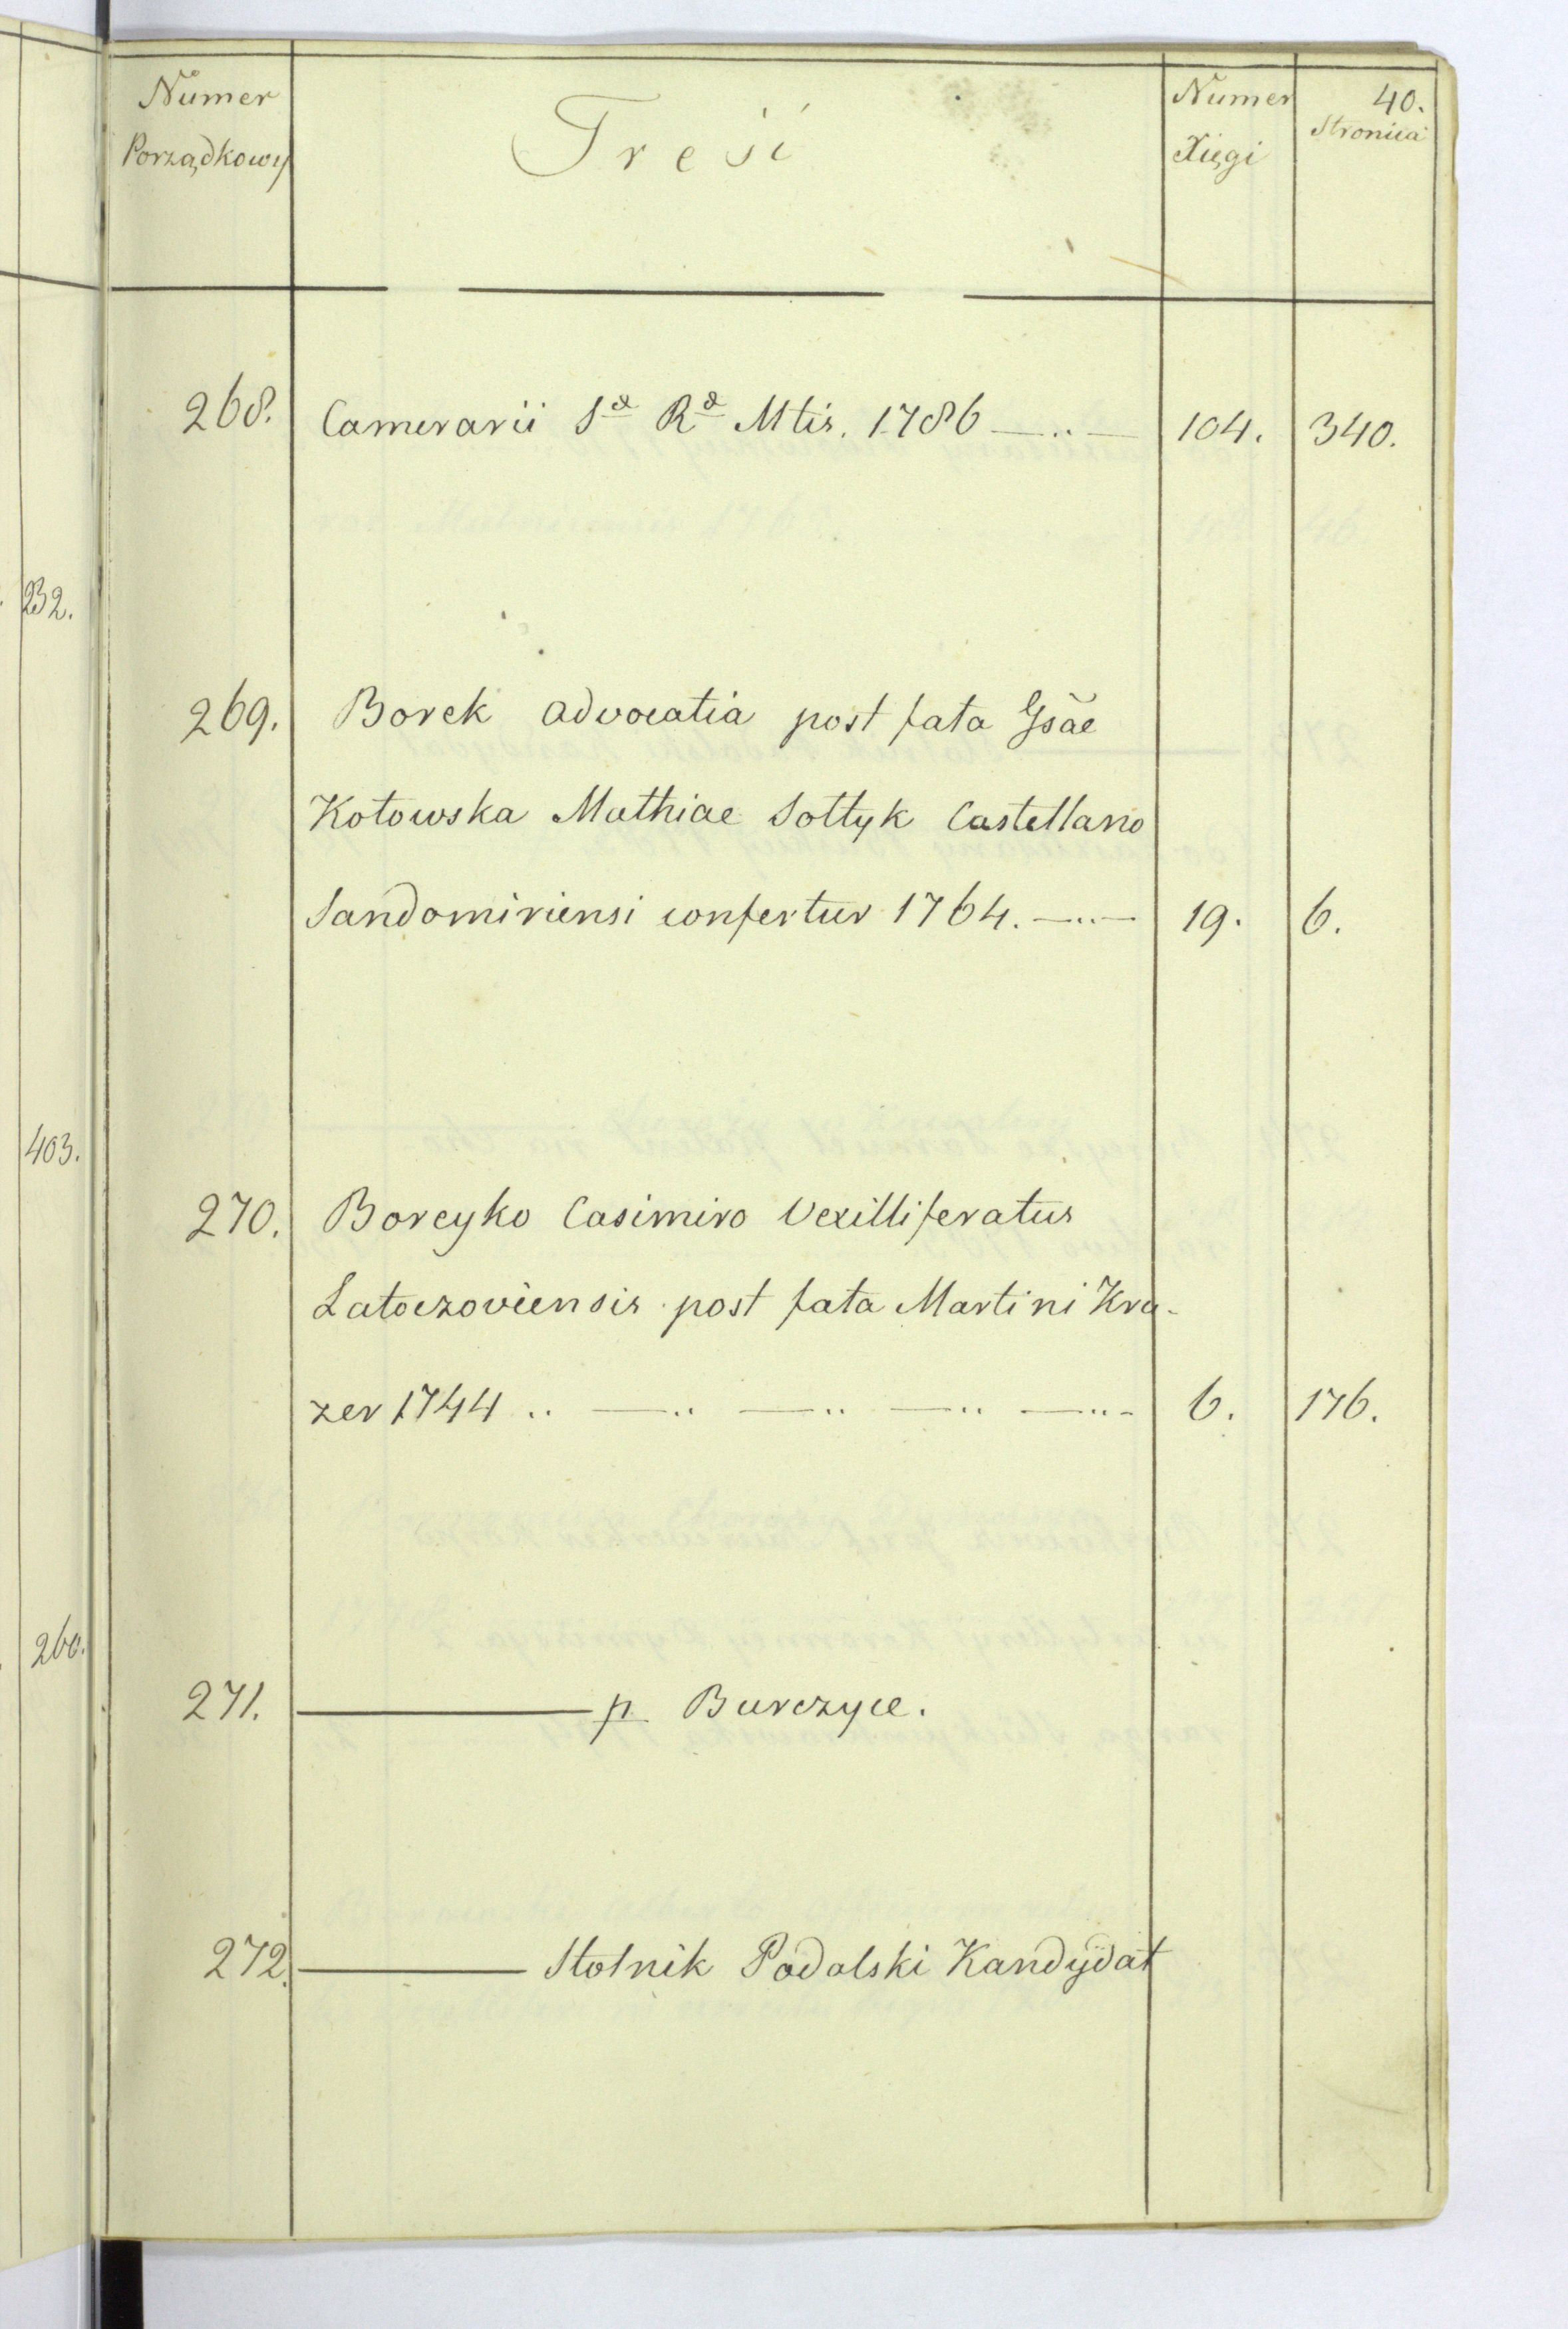 232.
403.
260.
40.
Numer Porządkowy Treść Numer Xięgi Stronica
268. Camerarii Sæ Ræ Mtis. 1786 — .. — 104. 340.
269. Borek advocatia post fata Gsae
Kotowska Mathiae Sołtyk Castellano
Sandomiriensi confertur 1764. — .. — 19. 6.
270. Boreyko Casimiro Vexilliferatus
Latoczoviensis post fata Martini Kra-
zer 1744 .. — .. — .. — .. — .. - 6. 176.
271. ——— p. Burczyce.
272. ——— Stolnik Podolski Kandydat